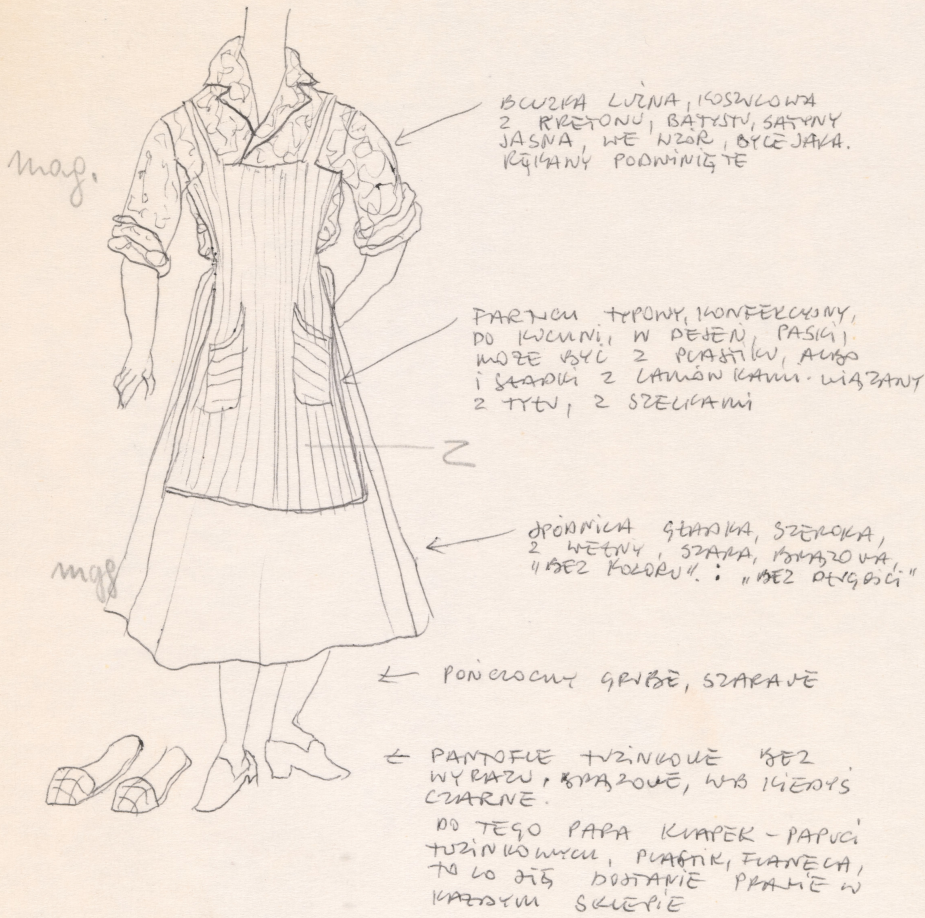 mag.
BLUZKA LUŹNA, KOSZULOWA
Z KRETONU, BATYSTU, SATYNY
JASNA, WE WZÓR, BYLE JAKA.
RĘKAWY PODWINIĘTE
FARTUCH TYPOWY, KONFEKCYJNY,
DO KUCHNI, W DESEŃ, PASKI,
MOŻE BYĆ Z PLASTIKU, ALBO
I GŁADKI Z LAMÓWKAMI. WIĄZANY
Z TYŁU, Z SZELKAMI
Z
SPÓDNICA GŁADKA, SZEROKA,
Z WEŁNY, SZARA, BRĄZOWA,
"BEZ KOLORU" I "BEZ DŁUGOŚCI"
mag
POŃCZOCHY GRUBE, SZARAWE
PANTOFLE TUZINKOWE BEZ
WYRAZU, BRĄZOWE, LUB KIEDYŚ
CZARNE.
DO TEGO PARA KLAPEK - PAPUCI
TUZINKOWYCH, PLASTIK, FLANELA,
TO CO SIĘ DOSTANIE PRAWIE W
KAŻDYM SKLEPIE